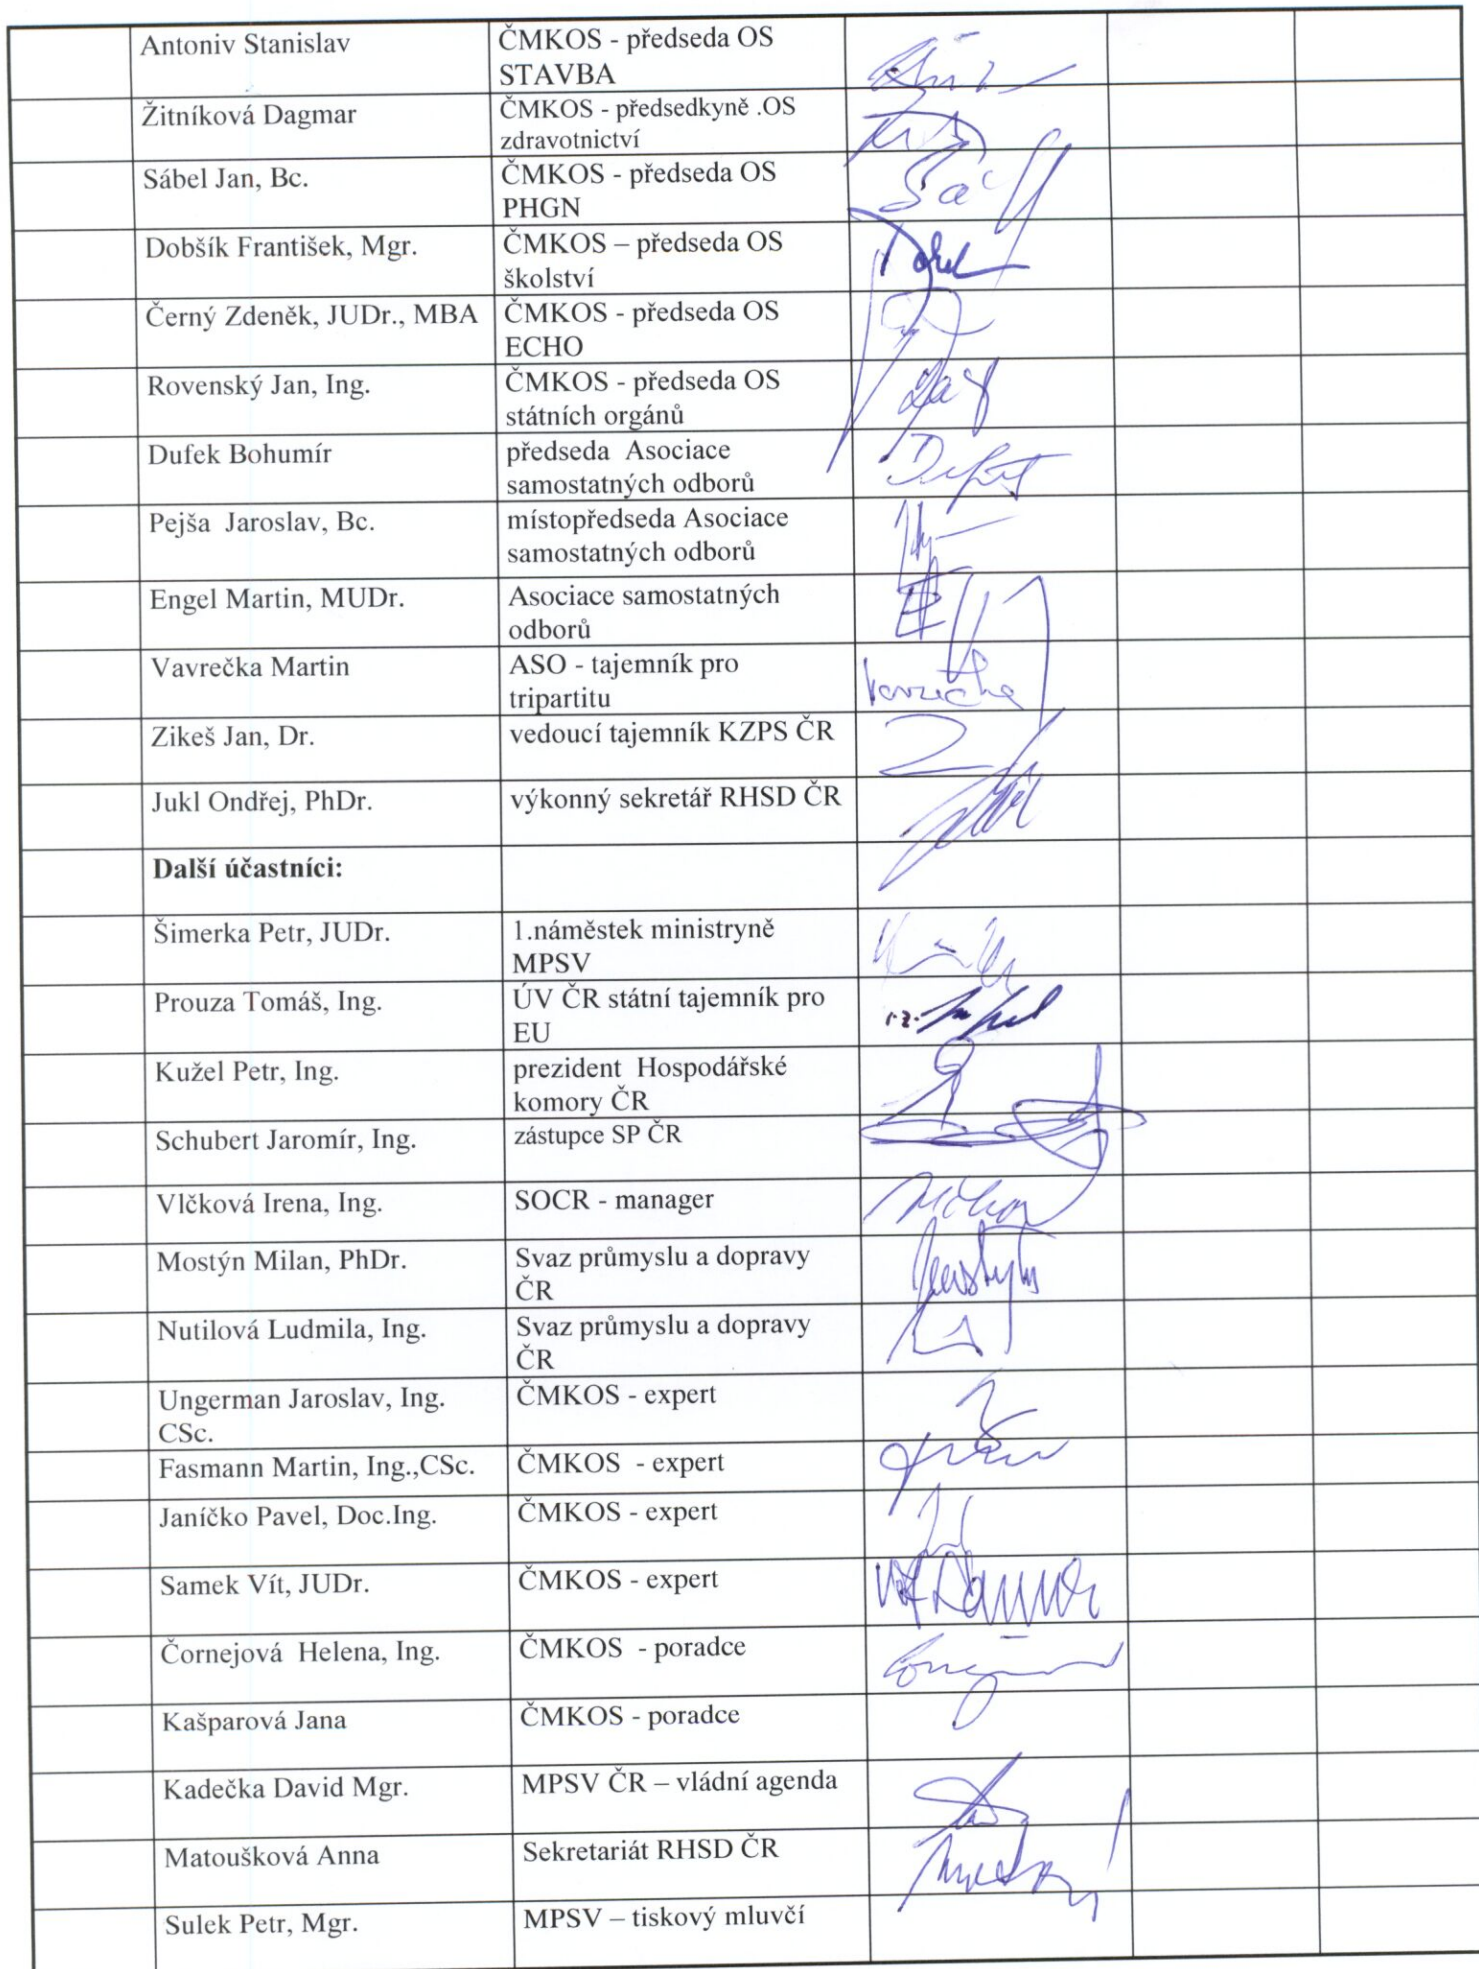 Antoniv Stanislav
ČMKOS - předseda OS
STAVBA
Žitníková Dagmar
ČMKOS - předsedkyně .OS
zdravotnictví
Sábel Jan, Bc.
ČMKOS - předseda OS
PHGN
Dobšík František, Mgr.
ČMKOS – předseda OS
školství
Černý Zdeněk, JUDr., MBA
ČMKOS - předseda OS
ECHO
Rovenský Jan, Ing.
ČMKOS - předseda OS
státních orgánů
Dufek Bohumír
předseda  Asociace
samostatných odborů
Pejša  Jaroslav, Bc.
místopředseda Asociace
samostatných odborů
Engel Martin, MUDr.
Asociace samostatných
odborů
Vavrečka Martin
ASO - tajemník pro
tripartitu
Zikeš Jan, Dr.
vedoucí tajemník KZPS ČR
Jukl Ondřej, PhDr.
výkonný sekretář RHSD ČR
Další účastníci:
Šimerka Petr, JUDr.
1.náměstek ministryně
MPSV
Prouza Tomáš, Ing.
ÚV ČR státní tajemník pro
EU
Kužel Petr, Ing.
prezident  Hospodářské
komory ČR
Schubert Jaromír, Ing.
zástupce SP ČR
Vlčková Irena, Ing.
SOCR - manager
Mostýn Milan, PhDr.
Svaz průmyslu a dopravy
ČR
Nutilová Ludmila, Ing.
Svaz průmyslu a dopravy
ČR
Ungerman Jaroslav, Ing.
CSc.
ČMKOS - expert
Fasmann Martin, Ing.,CSc.
ČMKOS  - expert
Janíčko Pavel, Doc.Ing.
ČMKOS - expert
Samek Vít, JUDr.
ČMKOS - expert
Čornejová  Helena, Ing.
ČMKOS  - poradce
Kašparová Jana
ČMKOS - poradce
Kadečka David Mgr.
MPSV ČR – vládní agenda
Matoušková Anna
Sekretariát RHSD ČR
Sulek Petr, Mgr.
MPSV – tiskový mluvčí